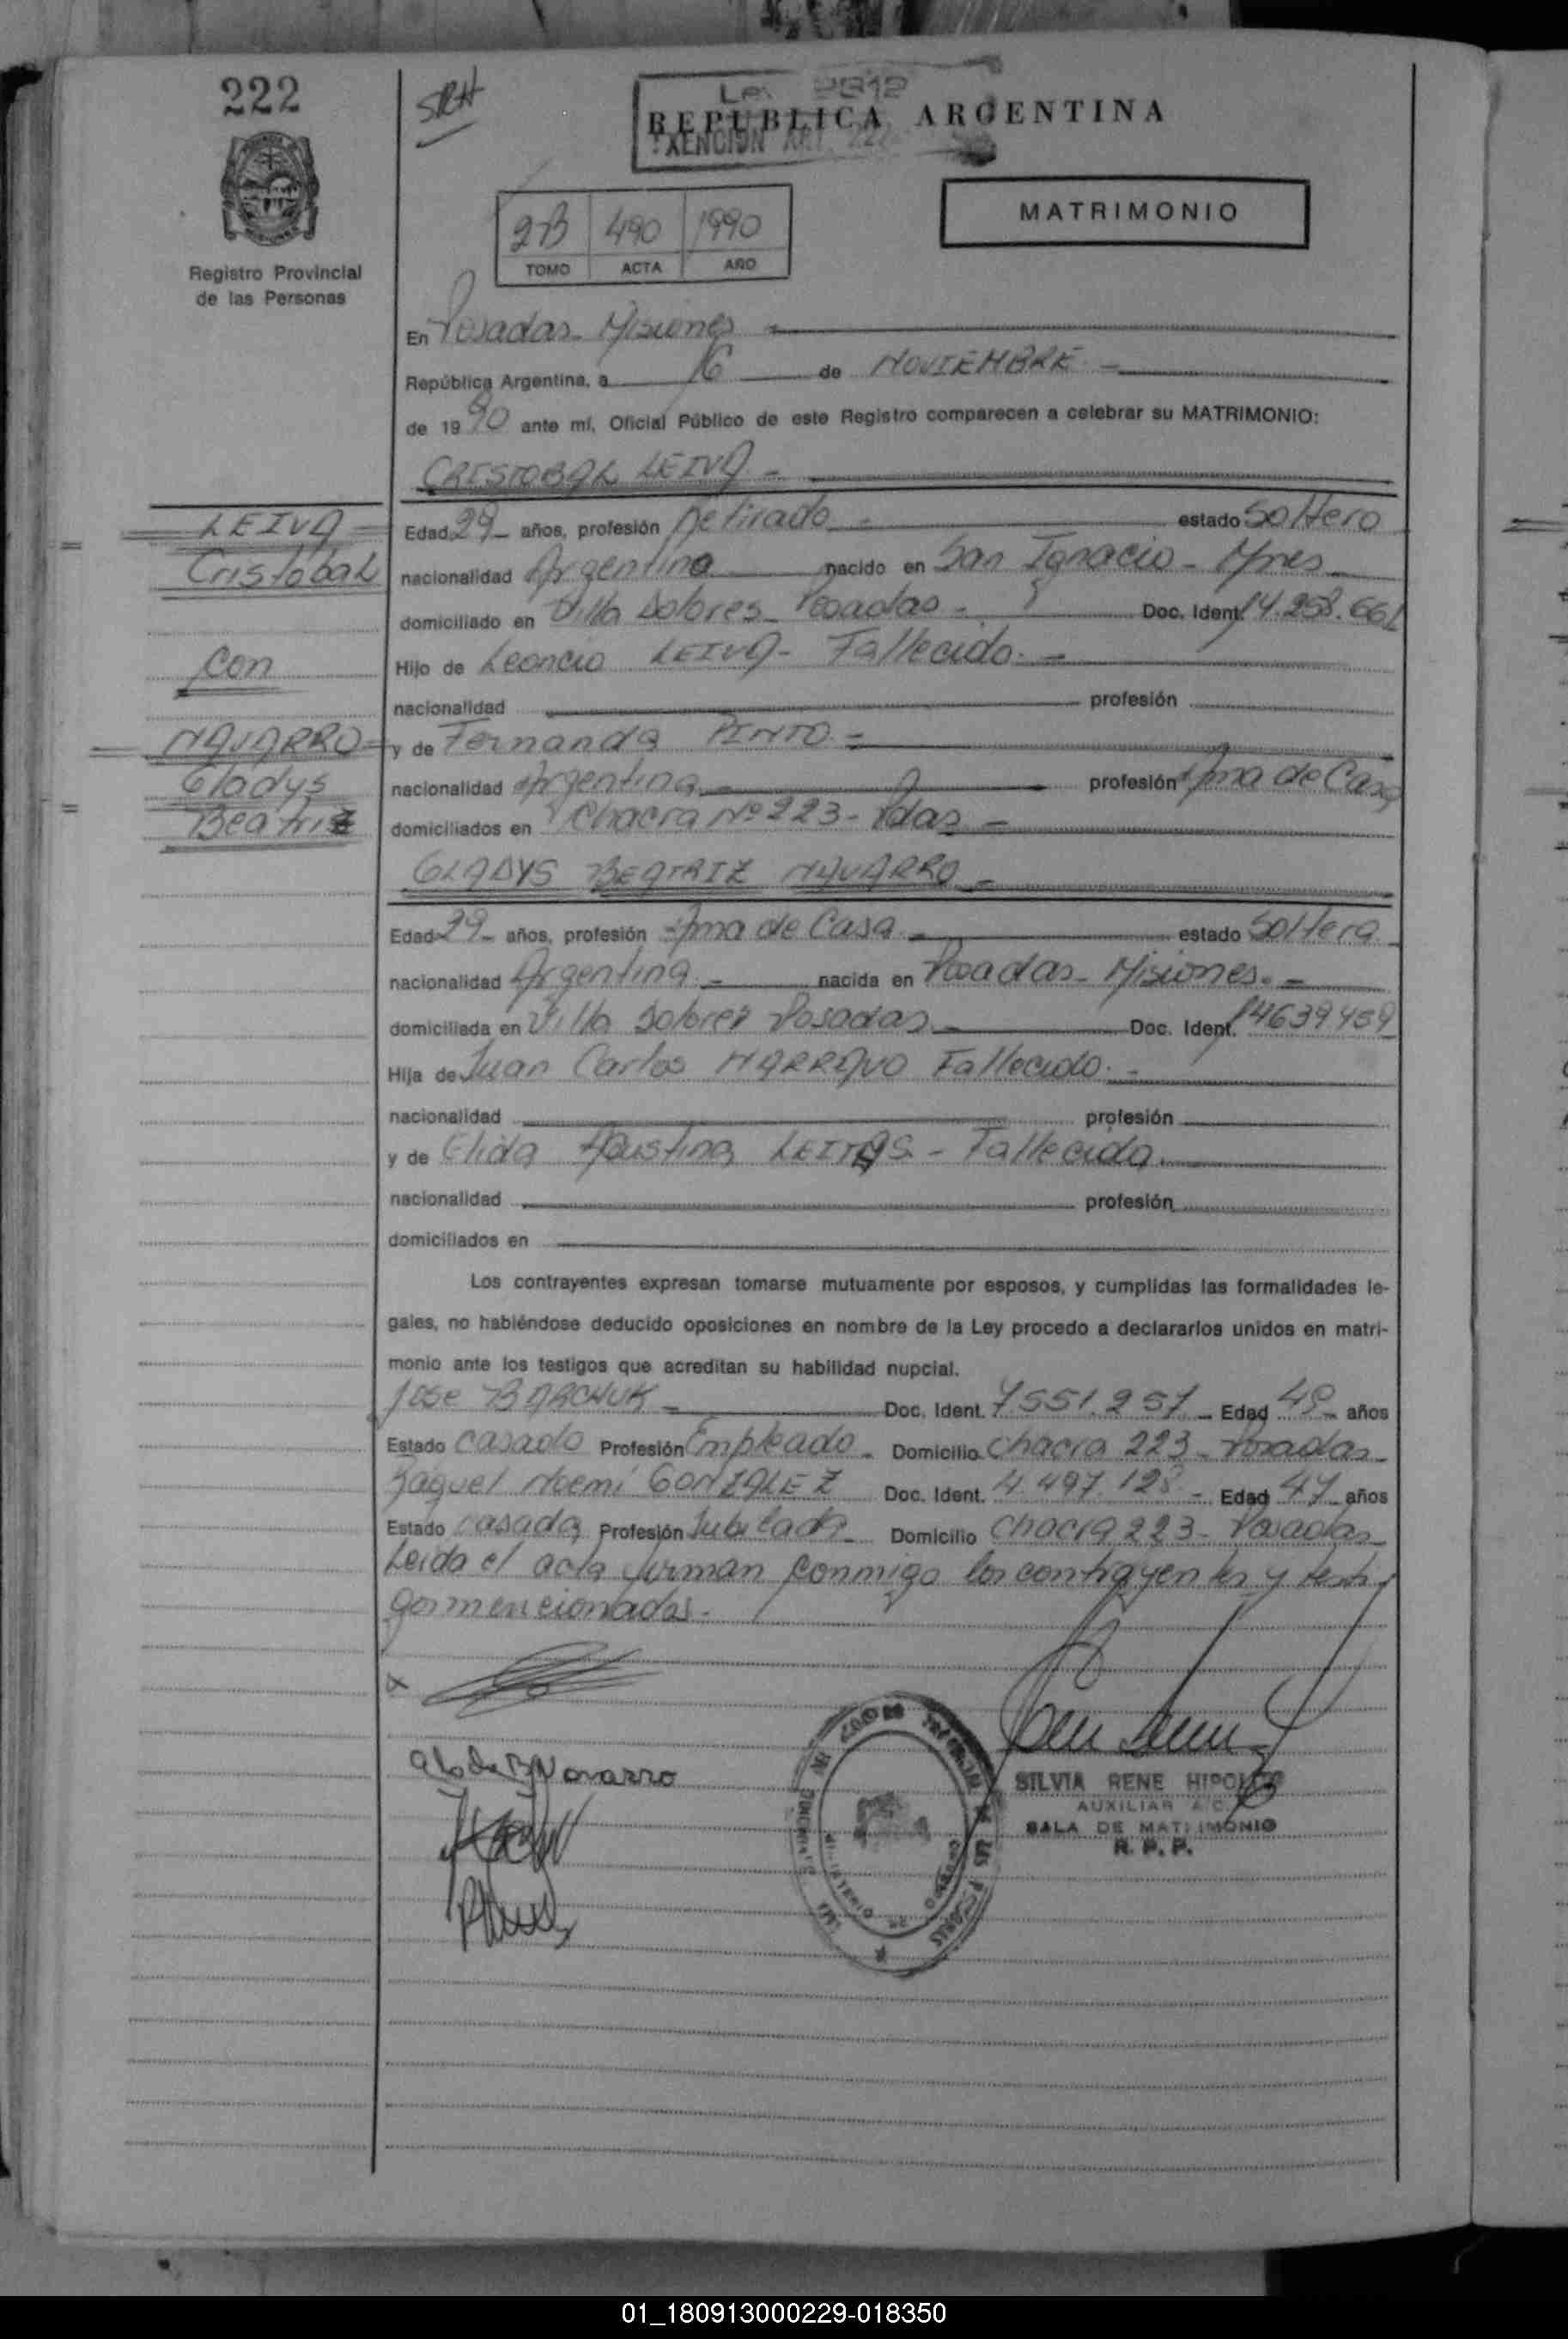 222
SRH
Ley 2812
REPUBLICA ARGENTINA
EXENCION ART. 222
MATRIMONIO
2B 490 1990
TOMO ACTA AÑO
Registro Provincial
de las Personas
En Posadas - Misiones -
República Argentina, a 16 de NOVIEMBRE -
de 1990 ante mí, Oficial Público de este Registro comparecen a celebrar su MATRIMONIO:
CRISTOBAL LEIVA -
LEIVA
Cristóbal
con
NAVARRO
Gladys
Beatriz
Edad 29 - años, profesión Retirado - estado Soltero
nacionalidad Argentina nacido en San Ignacio - Mnes
domiciliado en Villa Dolores - Posadas - Doc. Ident. 14.258.661
Hijo de Leoncio LEIVA - Fallecido. -
nacionalidad profesión
y de Fernanda PINTO. -
nacionalidad Argentina - profesión Ama de Casa
domiciliados en Chacra Nº 223 - Pdas -
GLADYS BEATRIZ NAVARRO -
Edad 29 - años, profesión Ama de Casa - estado Soltera
nacionalidad Argentina. - nacida en Posadas - Misiones. -
domiciliada en Villa Dolores Posadas - Doc. Ident. 14639459
Hija de Juan Carlos NARRAVO Fallecido. -
nacionalidad profesión
y de Elida Agustina LEITAS - Fallecida.
nacionalidad profesión
domiciliados en
Los contrayentes expresan tomarse mutuamente por esposos, y cumplidas las formalidades le-
gales, no habiéndose deducido oposiciones en nombre de la Ley procedo a declararlos unidos en matri-
monio ante los testigos que acreditan su habilidad nupcial.
José BARCHUK - Doc. Ident. 7.551.257 - Edad 49 - años
Estado casado Profesión Empleado - Domicilio Chacra 223 - Posadas
Raquel Noemí GONZALEZ Doc. Ident. 4.497.128 - Edad 47 años
Estado casada Profesión Jubilada - Domicilio Chacra 223 - Posadas
Leída el acta firman conmigo los contrayentes y testi
gos mencionados. -
Navarro
SILVIA RENE HIPOLITO
AUXILIAR A.C.
SALA DE MATRIMONIO
R. P. P.
01_180913000229-018350